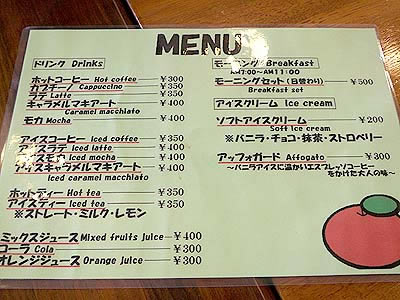 MENU
ドリンク Drinks
ホットコーヒー Hot coffee ¥300
カプチーノ Cappuccino ¥350
ラテ Latte ¥350
キャラメルマキアート ¥400
Caramel macchiato
モカ Mocha ¥400
アイスコーヒー Iced coffee ¥350
アイスラテ Iced latte ¥400
アイスモカ Iced mocha ¥400
アイスキャラメルマキアート ¥400
Iced caramel macchiato
ホットティー Hot tea ¥350
アイスティー Iced tea ¥350
※ストレート・ミルク・レモン
ミックスジュース Mixed fruits juice ¥400
コーラ Cola ¥300
オレンジジュース Orange juice ¥300
モーニング Breakfast
AM7:00~AM11:00
モーニングセット(日替わり) ¥500
Breakfast set
アイスクリーム Ice cream
ソフトアイスクリーム ¥200
Soft Ice cream
※バニラ・チョコ・抹茶・ストロベリー
アッフォガード Affogato ¥300
~バニラアイスに温かいエスプレッソコーヒー
をかけた大人の味~